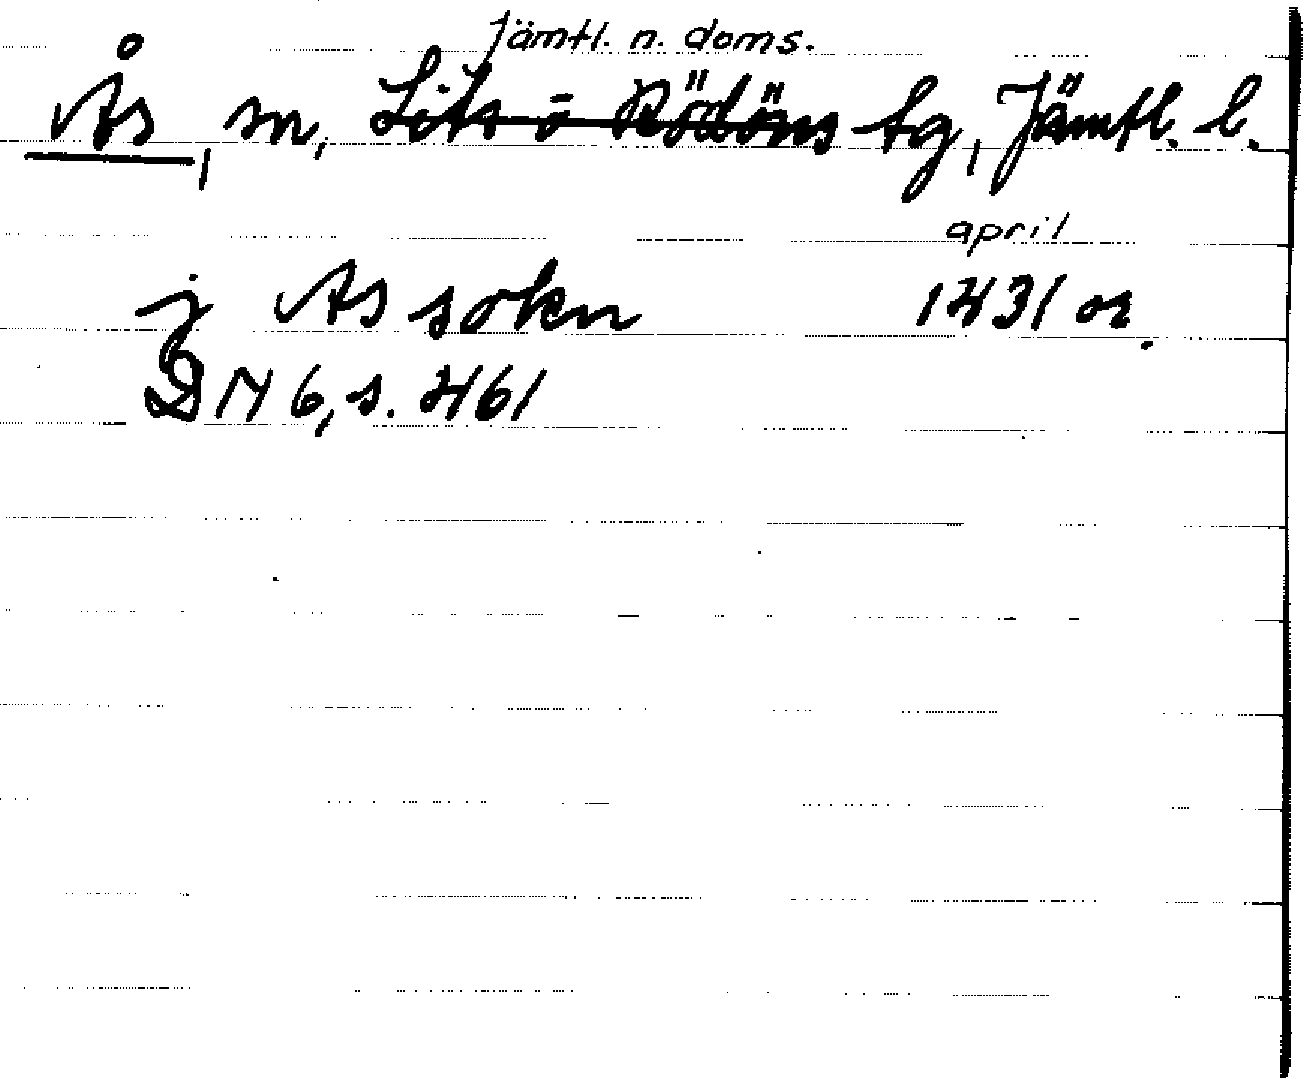 Jämtl. n. doms.
Ås, sn, Lits o Rödöns tg, Jämtl. l.
april
j As sokn 1431 or.
DN 6, s. 461